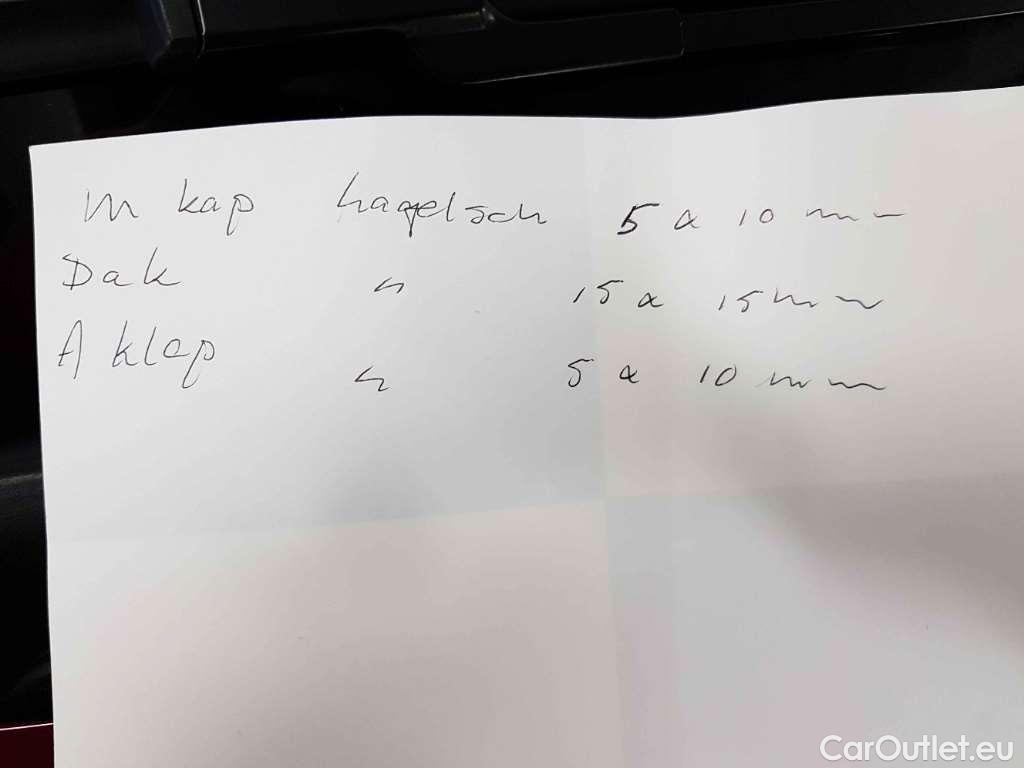 M kap hagelsch 5 a 10 mm
Dak " 15 a 15 mm
A klep " 5 a 10 mm
CarOutlet.eu